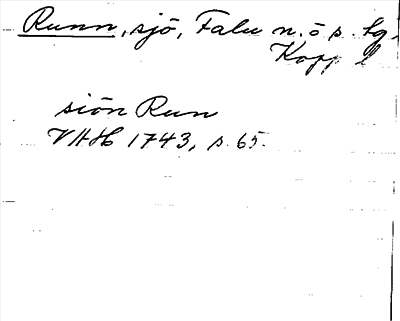 Runn, sjö, Falu n. o s. lg.
Kopp l
siön Run
VAH 1743, s. 65.